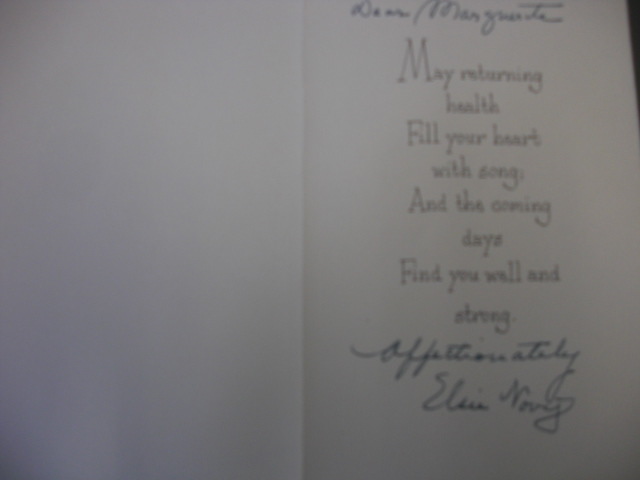 Dear Marguerite
May returning
health
Fill your heart
with song;
And the coming
days
Find you well and
strong.
Affectionately
Elsie